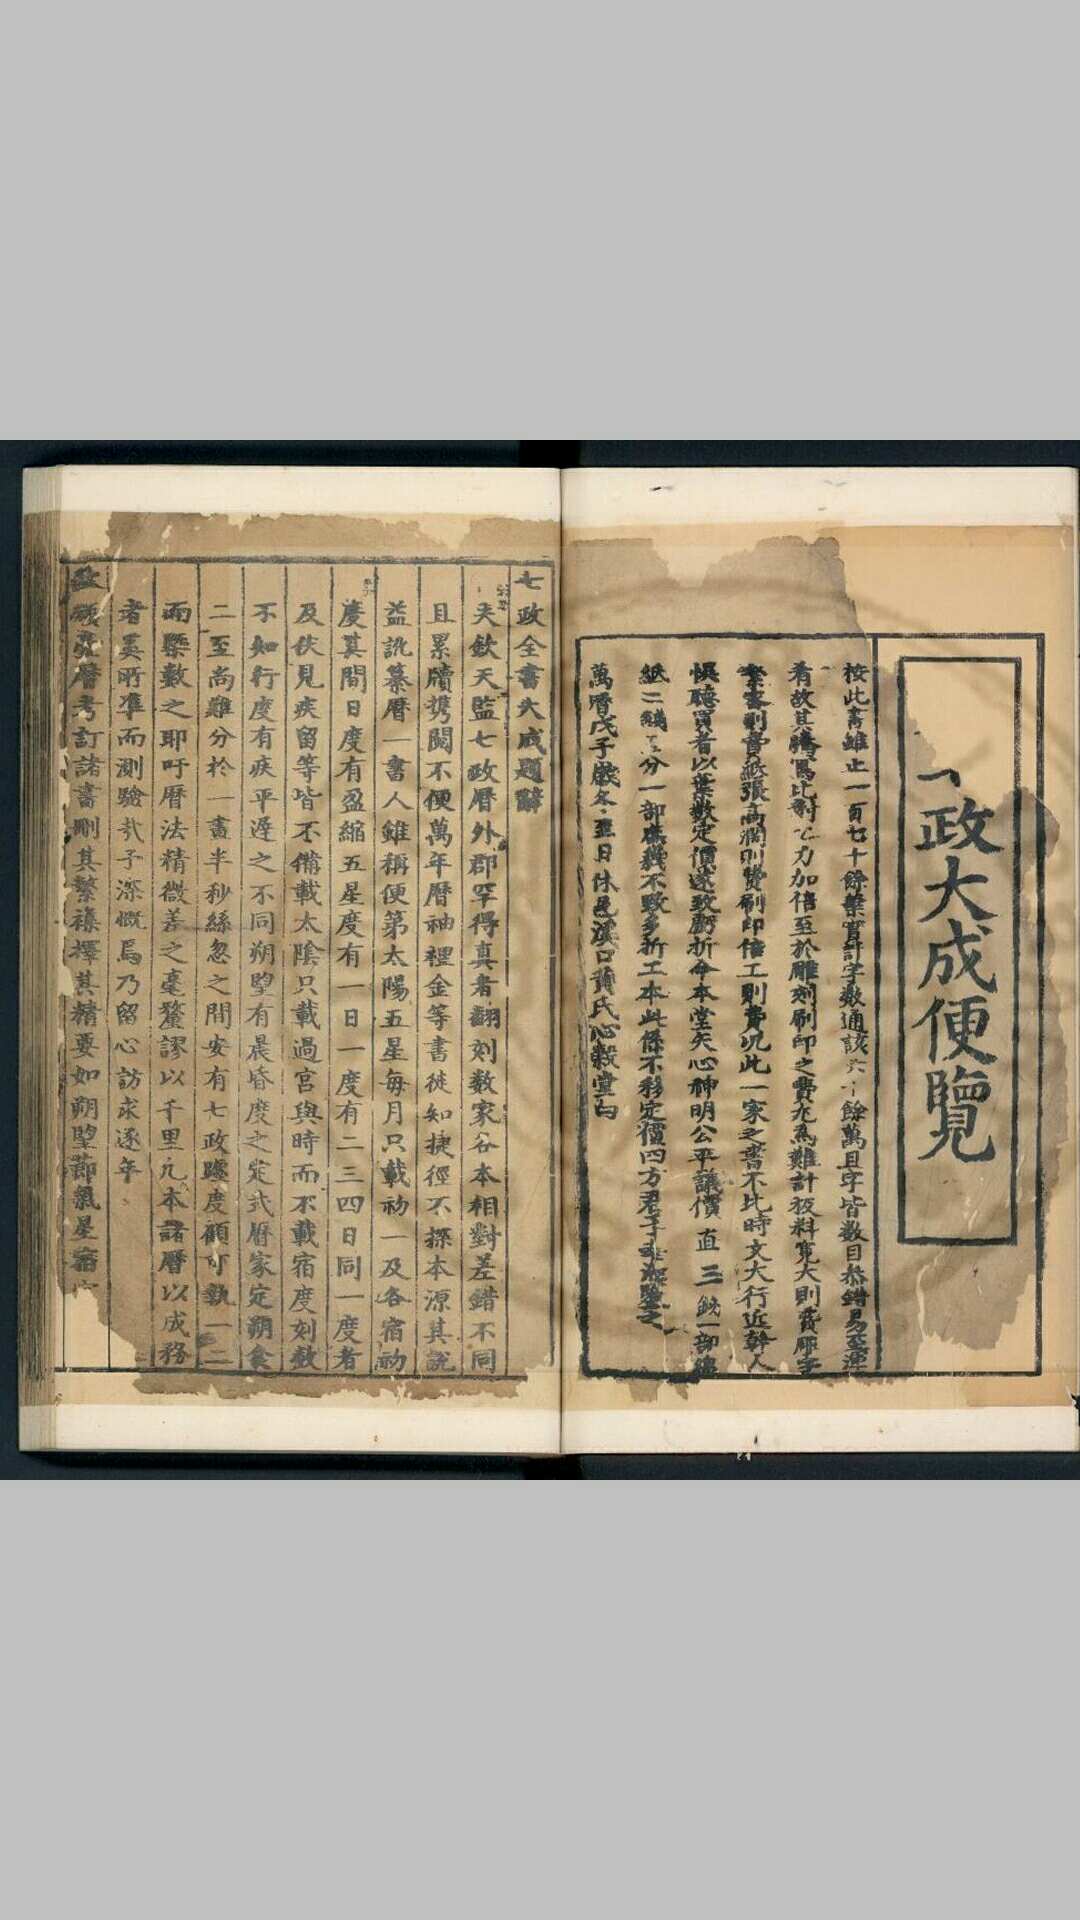 政大成便覽
按此書雖止一百七十餘葉實計字數通該六十餘萬且字皆數目恭錯易至渾
肴故其謄寫比對之力加倍至於雕刻刷印之費尤為難計板料寬大則費雕字
繁密則費紙張高濶則費刷印倍工則費況此一家之書不比時文大行近幹人
惧聽買者以葉數定價遂致虧折今本堂矢心神明公平議價 直三錢一部綿
紙二錢 分一部庶幾不致多折工本此係不移定價四方君子幸 鑒之
萬曆戊子歲冬至日休邑溪口黄氏心穀堂白
七政全書大成題辭
夫欽天監七政曆外郡罕得真者翻刻数家各本相對差錯不同
且累牘携閱不便萬年曆袖裡金等書徒知捷徑不探本源其説
益訛纂曆一書人雖稱便第太陽五星每月只載初一及各宿初
度其間日度有盈縮五星度有一日一度有二三四日同一度者
及伏見疾留等皆不備載太陰只載過宮與時而不載宿度刻数
不知行度有疾平遲之不同朔望有晨昏度之定式曆家定朔食
二至尚難分於一晝半秒絲忽之間安有七政躔度顧可執一二
而槩數之耶吁曆法精微差之毫釐謬以千里凢本諸曆以成務
者奚所凖而測驗㦲予深慨焉乃留心訪求逐年
曆考訂諸書刪其繁褥擇其精要如朔望節氣星宿